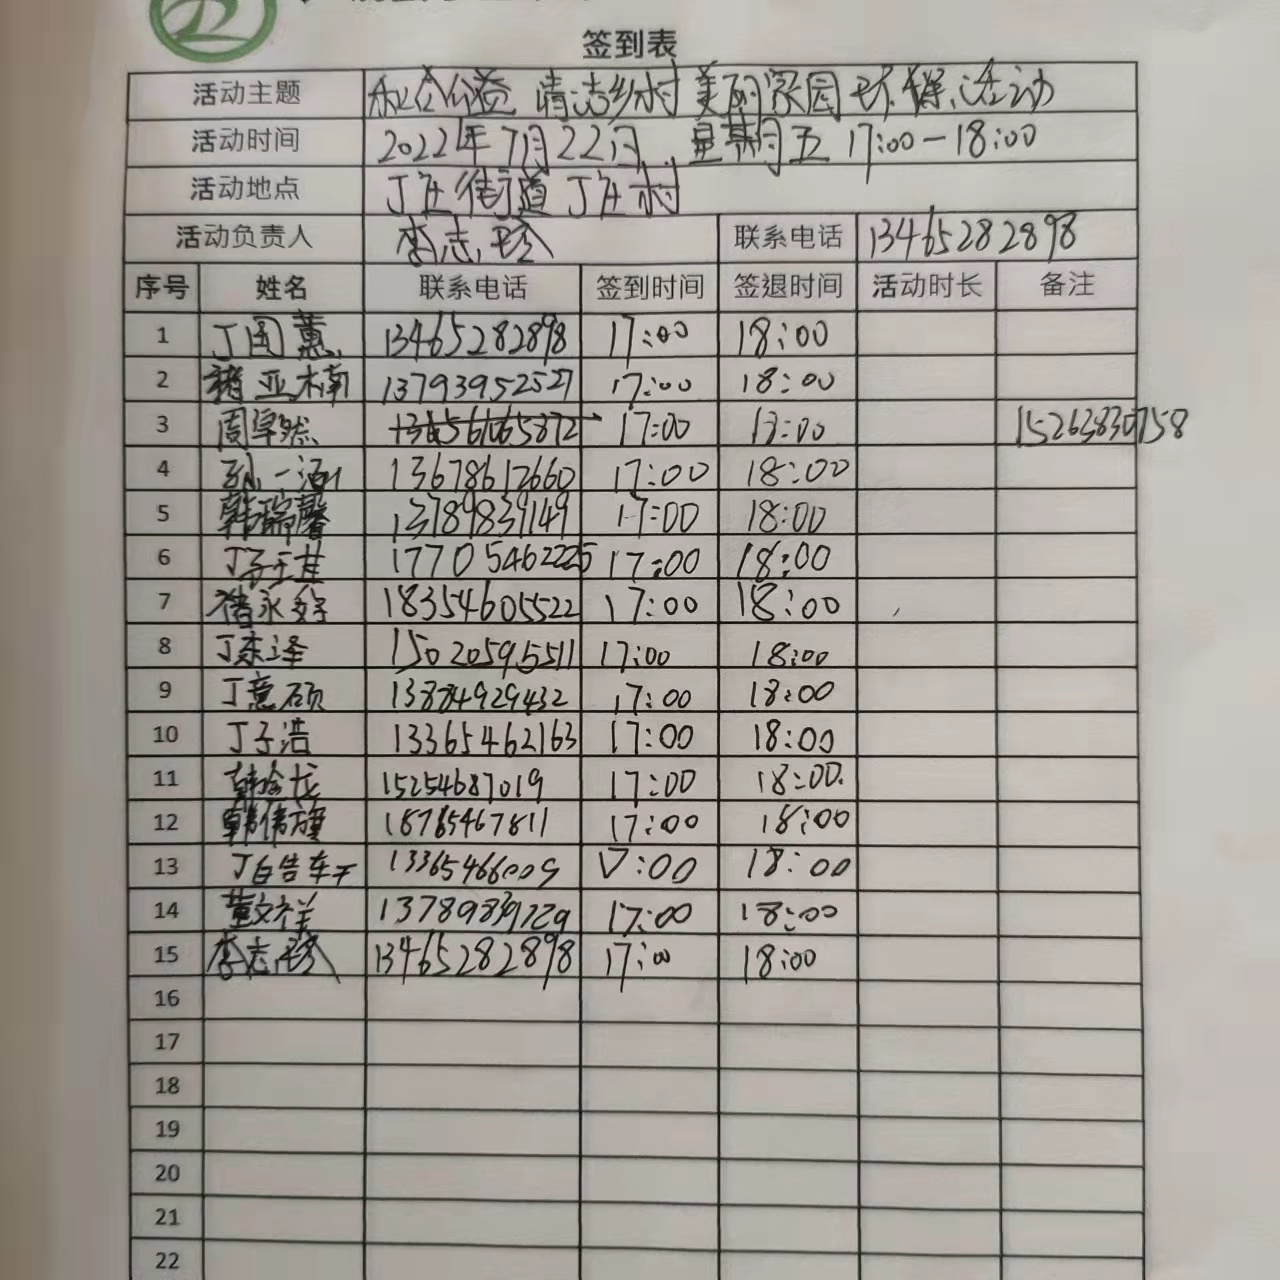 签到表
活动主题 公益 清洁乡村 美丽家园 环保活动
活动时间 2022年7月22日 星期五 17:00-18:00
活动地点 丁庄街道丁庄村
活动负责人 李志珍 联系电话 13465282898
序号 姓名 联系电话 签到时间 签退时间 活动时长 备注
1 丁图薰 13465282898 17:00 18:00
2 褚亚楠 13793952527 17:00 18:00
3 周卓然 17:00 18:00 15263830758
4 孙一涵 13678612660 17:00 18:00
5 韩瑞馨 13789839149 17:00 18:00
6 丁子玉甘 17705462225 17:00 18:00
7 褚永好 18354605522 17:00 18:00
8 丁东泽 15020595511 17:00 18:00
9 丁意硕 13884929432 17:00 18:00
10 丁子浩 13365462163 17:00 18:00
11 15254687019 17:00 18:00
12 韩伟旗 18765467811 17:00 18:00
13 丁皓轩 13365466009 17:00 18:00
14 董文祥 13789839729 17:00 18:00
15 李志珍 13465282898 17:00 18:00
16
17
18
19
20
21
22